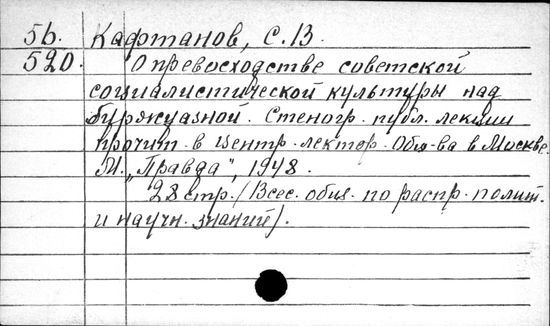 5б. Кафтанов, С.В.
520. О превосходстве советской
социалистической культуры над
буржуазной. Стеногр. публ. лекции
прочит. в Центр. лектор. Общ-ва в Москве.
М. „Правда", 1948.
28 стр. (Всес. общ. по распр. полит.
и научн. знаний).